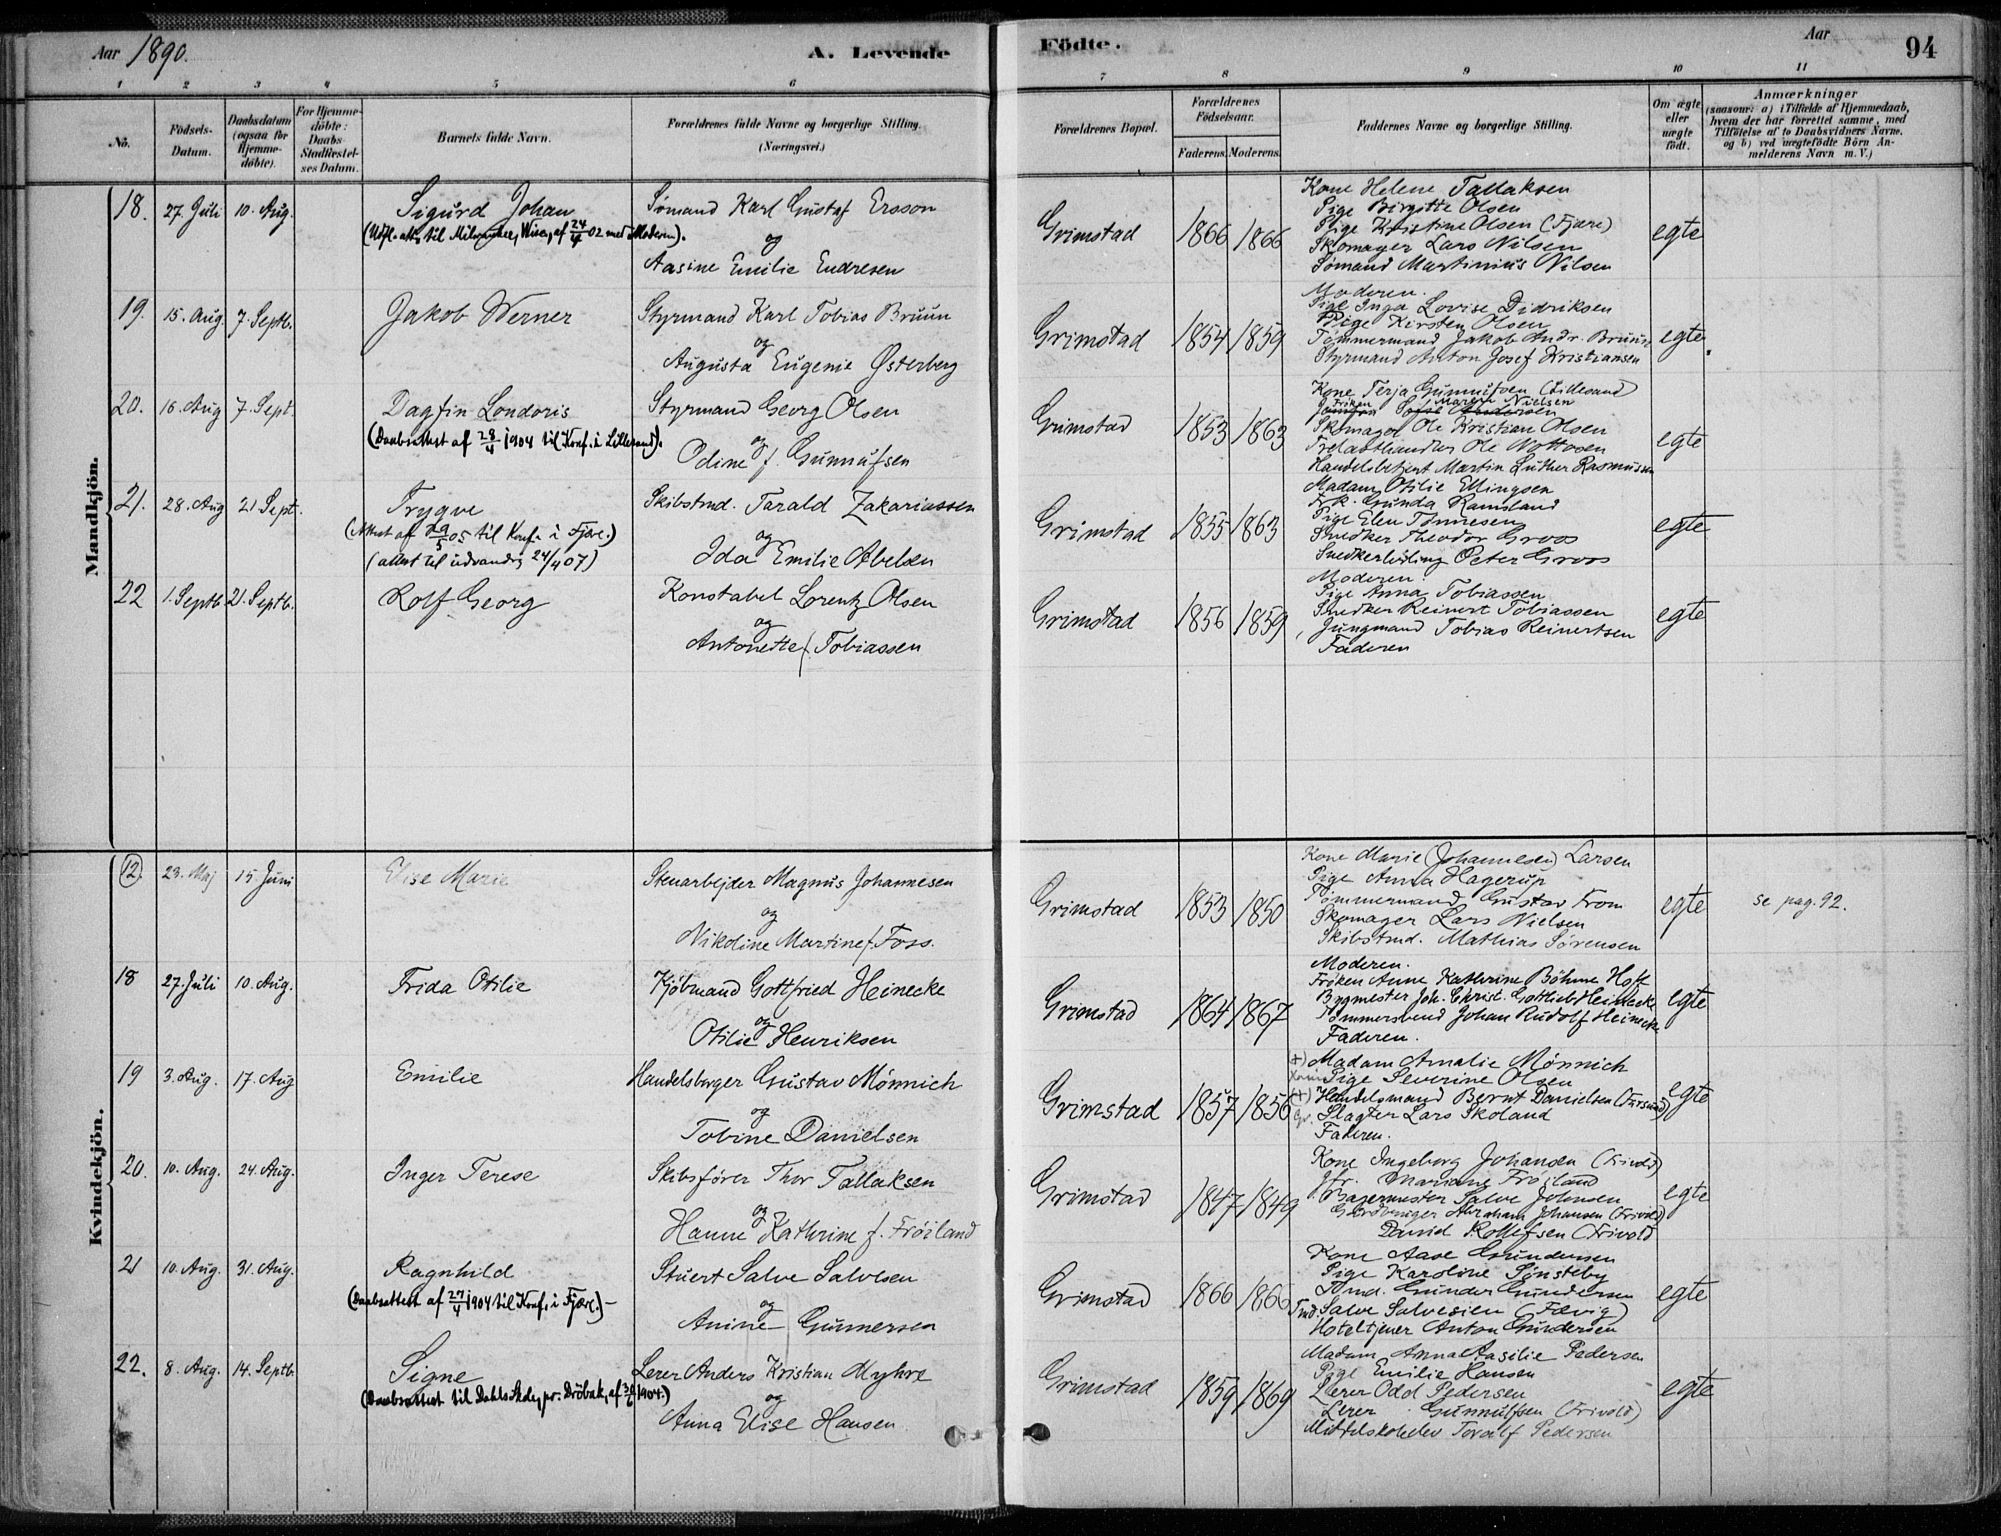 Aar 1890.
A. Levende
Födte.
Aar
94
1 2 3 4 5 6 7 8 9 10 11
No.
Födsels-Datum.
Daabsdatum (ogsaa for Hjemme-döbte).
For Hjemme-döbte: Daabs-Stadfæstel-ses Datum.
Barnets fulde Navn.
Forældrenes fulde Navne og borgerlige Stilling.
(Næringsvei.)
Forældrenes Bopæl.
Forældrenes Födselsaar.
Faderens. Moderens.
Faddernes Navne og borgerlige Stilling.
Om ægte eller uægte födt.
Anmærkninger
(saasom: a) i Tilfælde af Hjemmedaab,
hvem der har forrettet samme, med
Tilföielse af to Daabsvidners Navne.
og b) ved uægtefödte Börn An-
melderens Navn m. V.)
Mandkjön.
18. 27. Juli 10. Aug. Sigurd Johan
(Udfl. att. til Milwaukee, Wisc, af 24/4 02 med Modern).
Sømand Karl Gustaf Ersson
og
Aasine Emilie Endresen
Grimstad 1866 1866
Kone Helene Tallaksen
Pige Birgitte Olsen
Pige Kristine Olsen (Fjære)
Skomager Lars Nilsen
Sømand Martinius Nilsen
egte
19. 15. Aug. 7. Septb. Jakob Werner
Styrmand Karl Tobias Bruun
og
Augusta Eugenie Østerberg
Grimstad 1854 1859
Moderen.
Pige Inga Lovise Didriksen
Pige Kirsten Olsen
Tømmermand Jakob Andr. Bruun
Styrmand Anton Josef Kristiansen
egte.
20. 16. Aug 7. Sept. Dagfin Londoris
(Daabsattest af 28/4 1904 til Konf. i Lillesand).
Styrmand Georg Olsen
og
Odine f. Gunnufsen
Grimstad 1853 1863
Kone Terja Gunnufsen (Lillesand)
Frøken Maren Nielsen
Jomfru Sofie Andersen
Skomager Ole Kristian Olsen
Trælasthandler Ole Nottosen
Handelsbetjent Martin Luther Rasmussen
egte
21. 28. Aug 21 Sept. Trygve
(Attest af 29/5 05 til Konf. i Fjære.)
(attest til udvandrg 24/4 07)
Skibstmd. Tarald Zakariassen
og
Ida Emilie Abelsen
Grimstad 1855 1863
Madam Otilie Ellingsen
Frk. Gunda Ramsland
Pige Elen Tønnesen
Snedker Theodor Groos
Snedkerlærling Peter Groos
egte
22 1. Septb. 21. Septb. Rolf Georg
Konstabel Lorentz Olsen
og
Antonette f. Tobiassen
Grimstad 1856 1859
Moderen.
Pige Anna Tobiassen
Snedker Reinert Tobiassen
Jungmand Tobias Reinertsen
Faderen
egte
Kvindekjön.
12. 23. Maj 15 Juni Elise Marie
Stenarbejder Magnus Johannesen
og
Nikoline Martine f. Foss.
Grimstad 1853 1850
Kone Marie (Johannesen) Larsen
Pige Anna Hagerup
Tømmermand Gustav From
Skomager Lars Nielsen
Skibstmd. Mathias Sørensen
egte
se pag. 92.
18 27. Juli 10. Aug. Frida Otilie
Kjøbmand Gottfried Heinecke
og
Otilie Henriksen
Grimstad 1864 1867
Moderen.
Frøken Anne Kathrine Böhme Hoff
Bygmester Joh. Christ. Gottlieb Heinecke
Tømmersvend Johan Rudolf Heinecke
Faderen.
egte
19 3. Aug. 17. Aug Emilie
Handelsborger Gustav Mönnich
og
Tobine Danielsen
Grimstad 1857 1856
Madam Amalie Mönnich
Pige Severine Olsen
Handelsmand Bernt Danielsen (Farsund)
Slagter Lars Skoland
Faderen.
egte
20. 10. Aug. 24. Aug. Inger Terese
Skibsfører Thor Tallaksen
og
Hanne Kathrine f. Frøiland
Grimstad 1847 1849
Kone Ingeborg Johansen (Frivold)
Jfr. Mariane Frøiland
Bagermester Salve Johnsen
Gårdbruger Abraham Johansen (Frivold)
David Rollefsen (Frivold
egte
21 10. Aug. 31. Aug. Ragnhild
(Daabsattest af 27/4 1904 til Konf. i Fjære.) -
Stuert Salve Salvesen
og
Anine Gunnersen
Grimstad 1866 1866
Kone Aase Gundersen
Pige Karoline Sønsteby
Tmd. Gunder Gundersen
Tmd. Salve Salvesien (Fævig)
Hoteltjener Anton Gundersen
egte
22. 8. Aug. 14. Septb. Signe
(Daabsattest til Dahls Skole, pr. Dröbak, af 1904.)
Lerer Anders Kristian Myhre
og
Anna Elise Hansen
Grimstad 1859 1869
Madam Anna Aasilie Pedersen
Pige Emilie Hansen
Lærer Odd Pedersen
Lerer Gunnulfsen (Frivold)
Middelskolelev Toralf Pedersen
egte